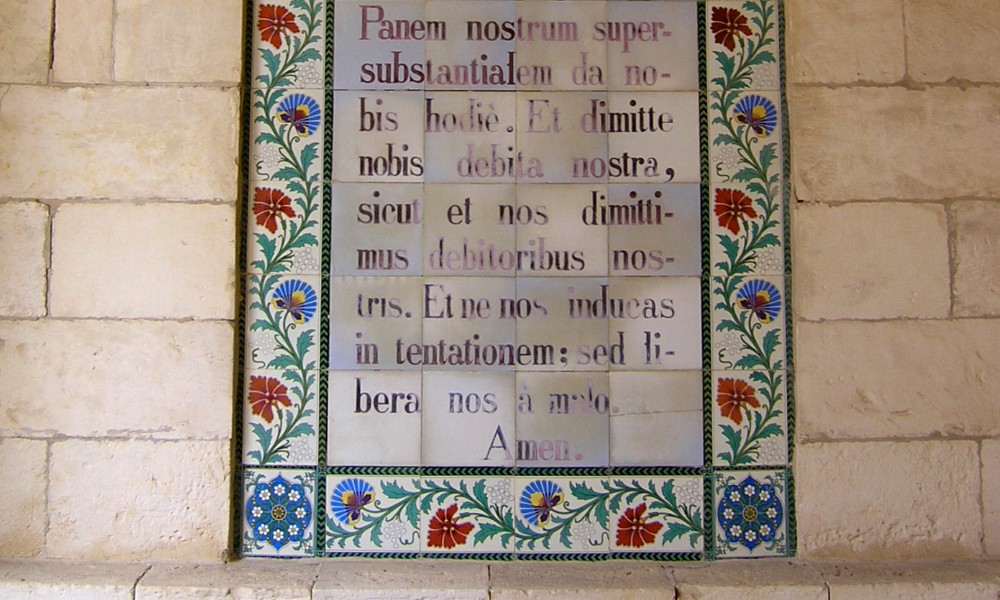 Panem nostrum super-
substantialem da no-
bis hodiè. Et dimitte
nobis debita nostra,
sicut et nos dimitti-
mus debitoribus nos-
tris. Et ne nos inducas
in tentationem; sed li-
bera nos à malo.
Amen.